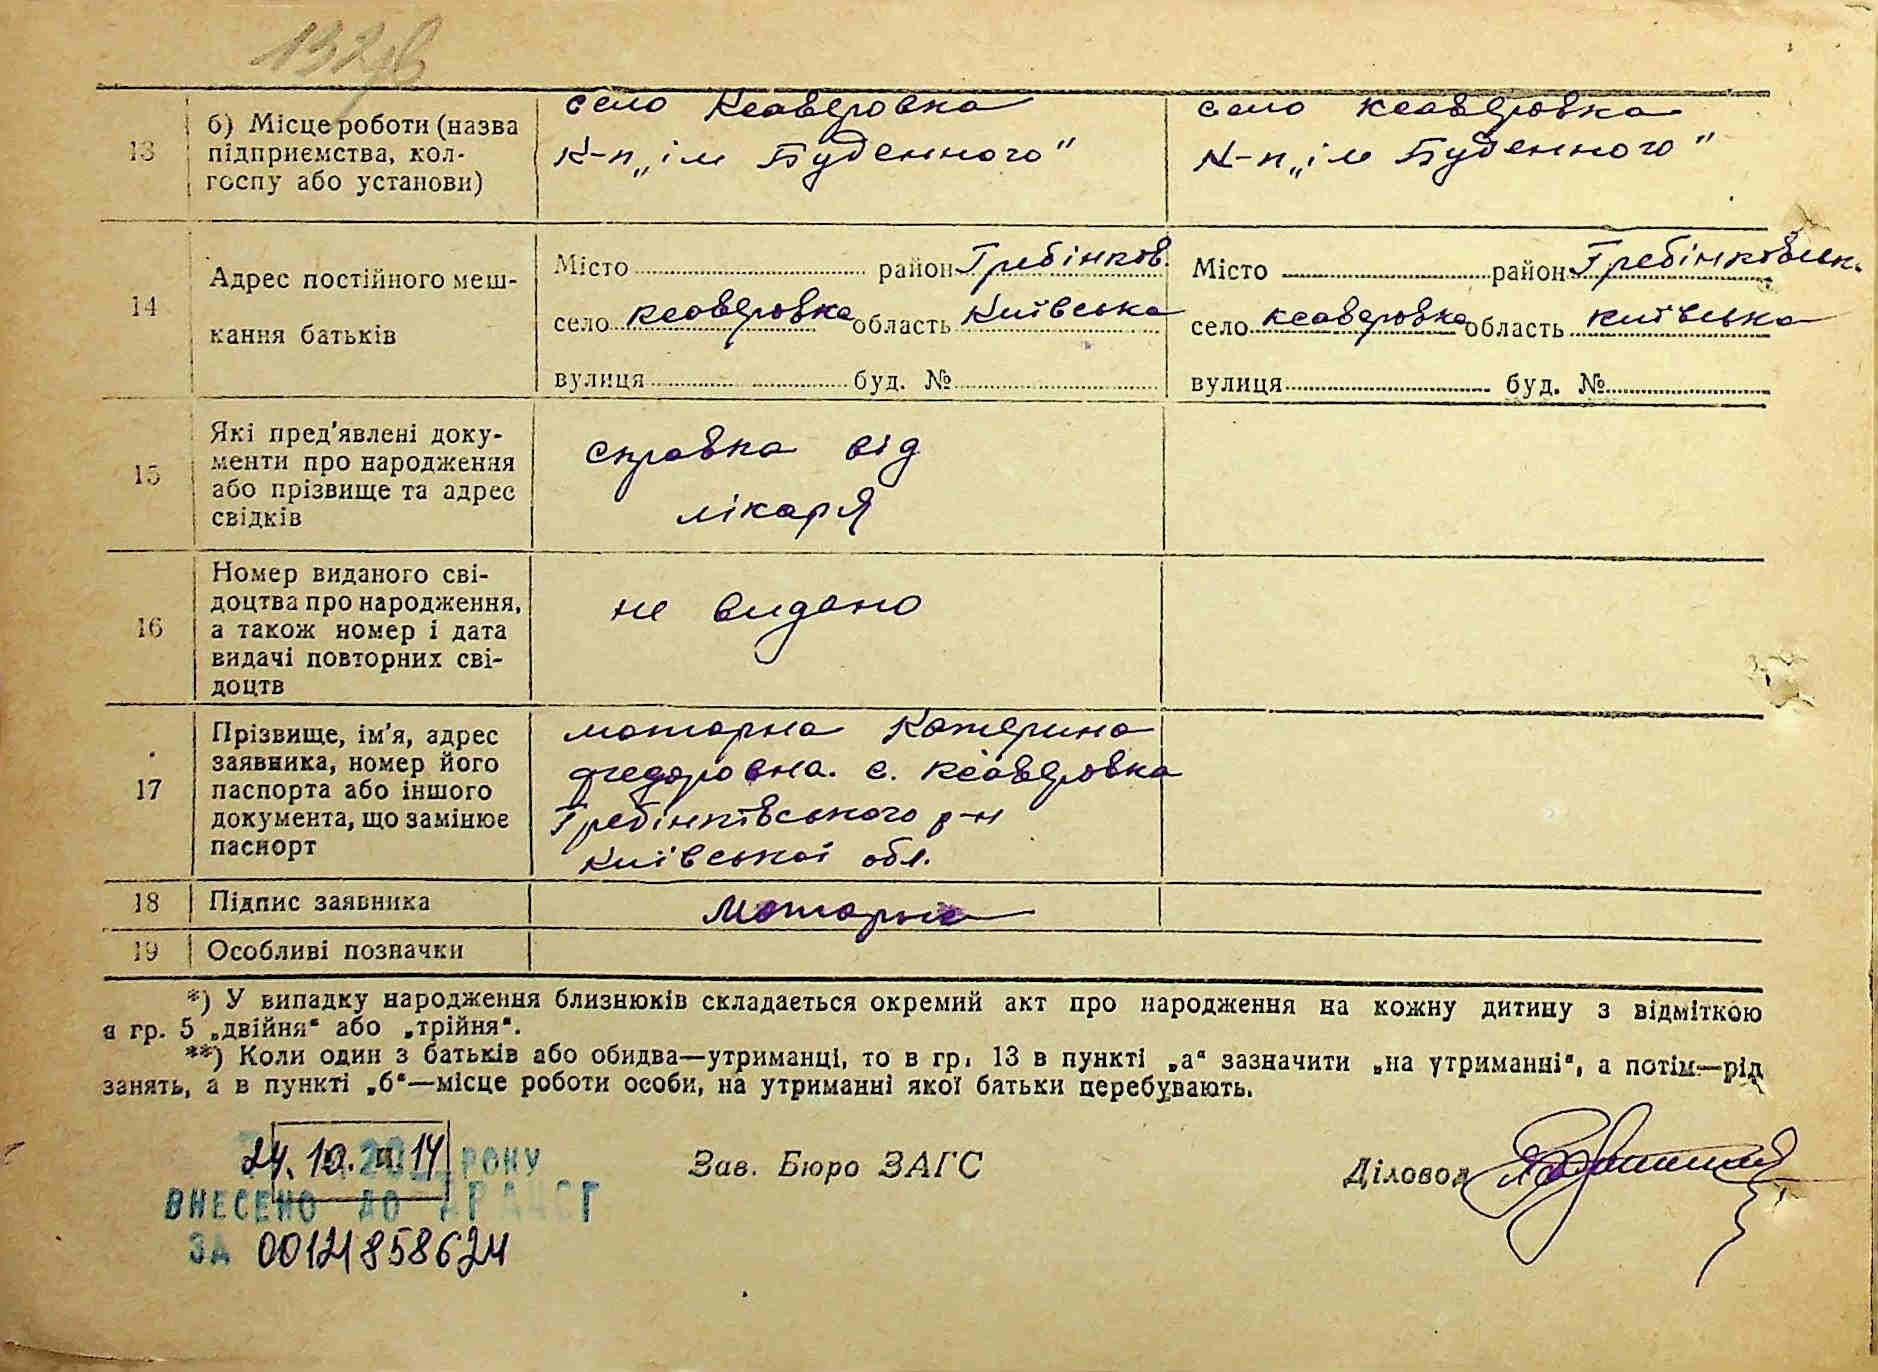 132
13
б) Місце роботи (назва
підприємства, кол-
госпу або установи)
село Ксаверовка
К-п „ім Буденного"
село Ксаверовка
К-п „ім Буденного"
14
Адрес постійного меш-
кання батьків
Місто район Гребінков.
село Ксаверовка область Київська
вулиця буд. №
Місто район Гребінковськ.
село Ксаверовка область Київська
вулиця буд. №
15
Які пред'явлені доку-
менти про народження
або прізвище та адрес
свідків
справка від
лікаря
16
Номер виданого сві-
доцтва про народження,
а також номер і дата
видачі повторних сві-
доцтв
не видано
17
Прізвище, ім'я, адрес
заявника, номер його
паспорта або іншого
документа, що замінює
паспорт
Моторна Катерина
Федоровна. с. Ксаверовка
Гребінківського р-н
Київської обл.
18
Підпис заявника
Моторна
19
Особливі позначки
*) У випадку народження близнюків складається окремий акт про народження на кожну дитину з відміткою
в гр. 5 „двійня" або „трійня".
**) Коли один з батьків або обидва—утриманці, то в гр. 13 в пункті „а" зазначити „на утриманні", а потім—рід
занять, а в пункті „б"—місце роботи особи, на утриманні якої батьки перебувають.
24.10. 2014 РОКУ
ВНЕСЕНО ДО ДРАЦСГ
ЗА 00121858624
Зав. Бюро ЗАГС
Діловод